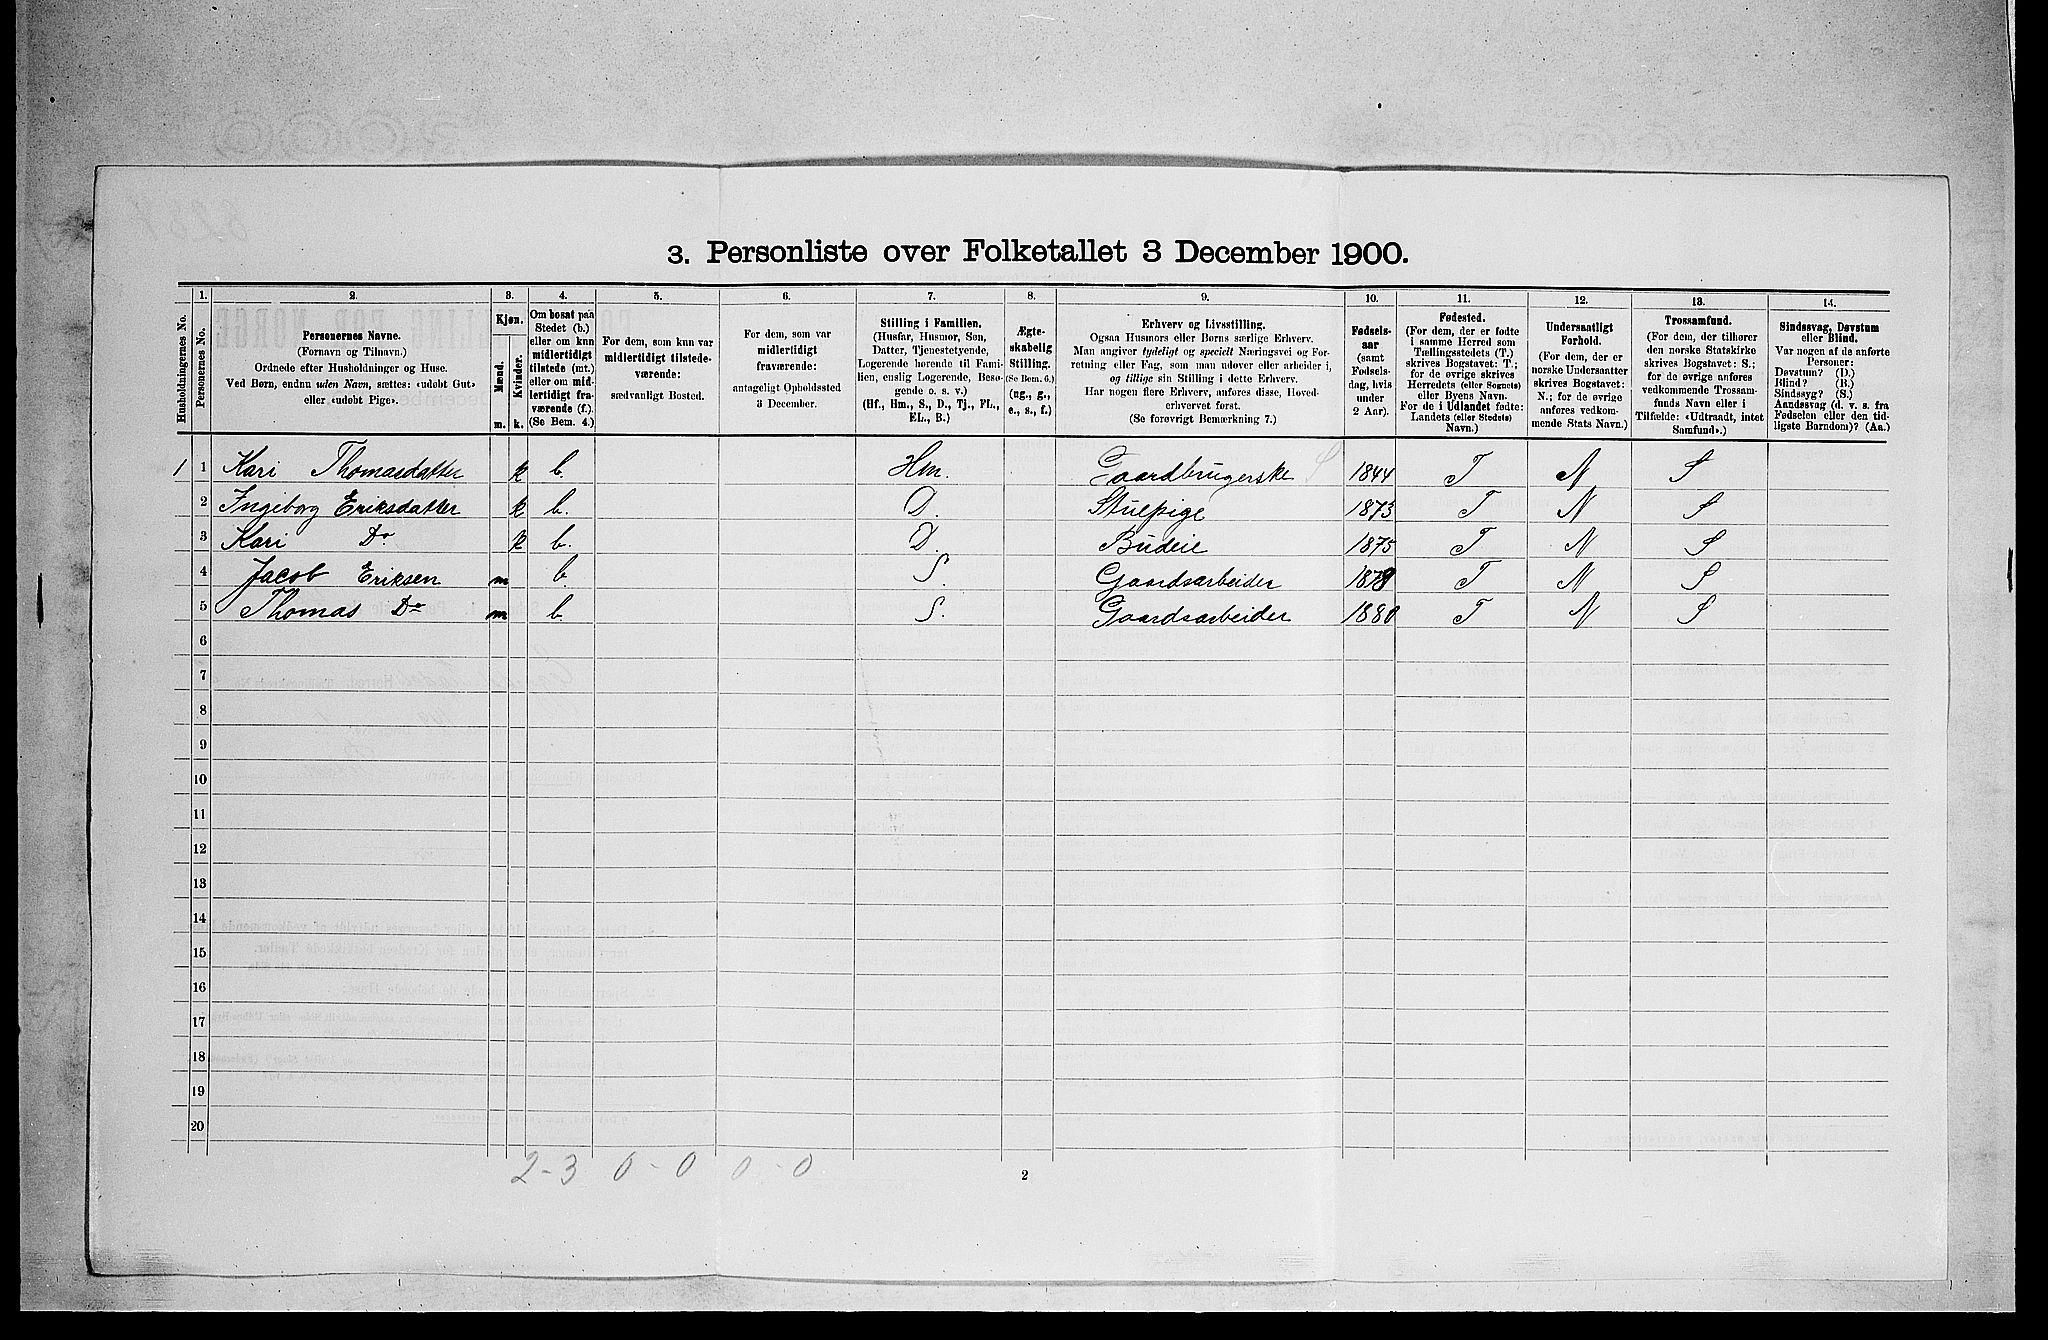 3. Personliste over Folketallet 3 December 1900.
1. 2. 3. 4. 5. 6. 7. 8. 9. 10. 11. 12. 13. 14.
Husholdningernes No.
Personernes No.
Personernes Navne.
(Fornavn og Tilnavn.)
Ordnede efter Husholdninger og Huse.
Ved Børn, endnu uden Navn, sættes: «udøbt Gut»
eller «udøbt Pige».
Kjøn.
Mænd.
Kvinder.
m. k.
Om bosat paa
Stedet (b.)
eller om kun
midlertidigt
tilstede (mt.)
eller om mid-
lertidigt fra-
værende (f.).
(Se Bem. 4.)
For dem, som kun var
midlertidigt tilstede-
værende:
sædvanligt Bosted.
For dem, som var
midlertidigt
fraværende:
antageligt Opholdssted
3 December.
Stilling i Familien.
(Husfar, Husmor, Søn,
Datter, Tjenestetyende,
Logerende hørende til Fami-
lien, enslig Logerende, Besø-
gende o. s. v.)
(Hf., Hm., S., D., Tj., FL.,
EL., B.)
Ægte-
skabelig
Stilling.
(Se Bem. 6.)
(ug., g.,
e., s., f.)
Erhverv og Livsstilling.
Ogsaa Husmors eller Børns særlige Erhverv.
Man angiver tydeligt og specielt Næringsvei og For-
retning eller Fag, som man udøver eller arbeider i,
og tillige sin Stilling i dette Erhverv.
Har nogen flere Erhverv, anføres disse, Hoved-
erhvervet først.
(Se forøvrigt Bemærkning 7.)
Fødsels-
aar
(samt
Fødsels-
dag, hvis
under
2 Aar).
Fødested.
(For dem, der er fødte
i samme Herred som
Tællingsstedets (T.)
skrives Bogstavet: T.;
for de øvrige skrives
Herredets (eller Sognets)
eller Byens Navn.
For de i Udlandet fødte:
Landets (eller Stedets)
Navn.)
Undersaatligt
Forhold.
(For dem, der er
norske Undersaatter
skrives Bogstavet:
N.; for de øvrige
anføres vedkom-
mende Stats Navn.)
Trossamfund.
(For dem, der tilhører
den norske Statskirke
skrives Bogstavet: S.;
for de øvrige anføres
vedkommende Trossam-
funds Navn eller i
Tilfælde: «Udtraadt, intet
Samfund».)
Sindssvag, Døvstum
eller Blind.
Var nogen af de anførte
Personer:
Døvstum? (D.)
Blind? (B.)
Sindssyg? (S.)
Aandssvag (d. v. s. fra
Fødselen eller den tid-
ligste Barndom)? (Aa.)
1 1 Kari Thomasdatter k b. Hm. Gaardbrugerske S 1844 T N S
2 Ingeborg Eriksdatter k b. D. Stuepige 1873 T N S
3 Kari Do k b. D. Budeie 1875 T N S
4 Jacob Eriksen m b. S. Gaardsarbeider 1878 T N S
5 Thomas Do m b. S. Gaardsarbeider 1880 T N S
6
7
8
9
10
11
12
13
14
15
16
17
18
19
20
2-3 0-0 0-0
2